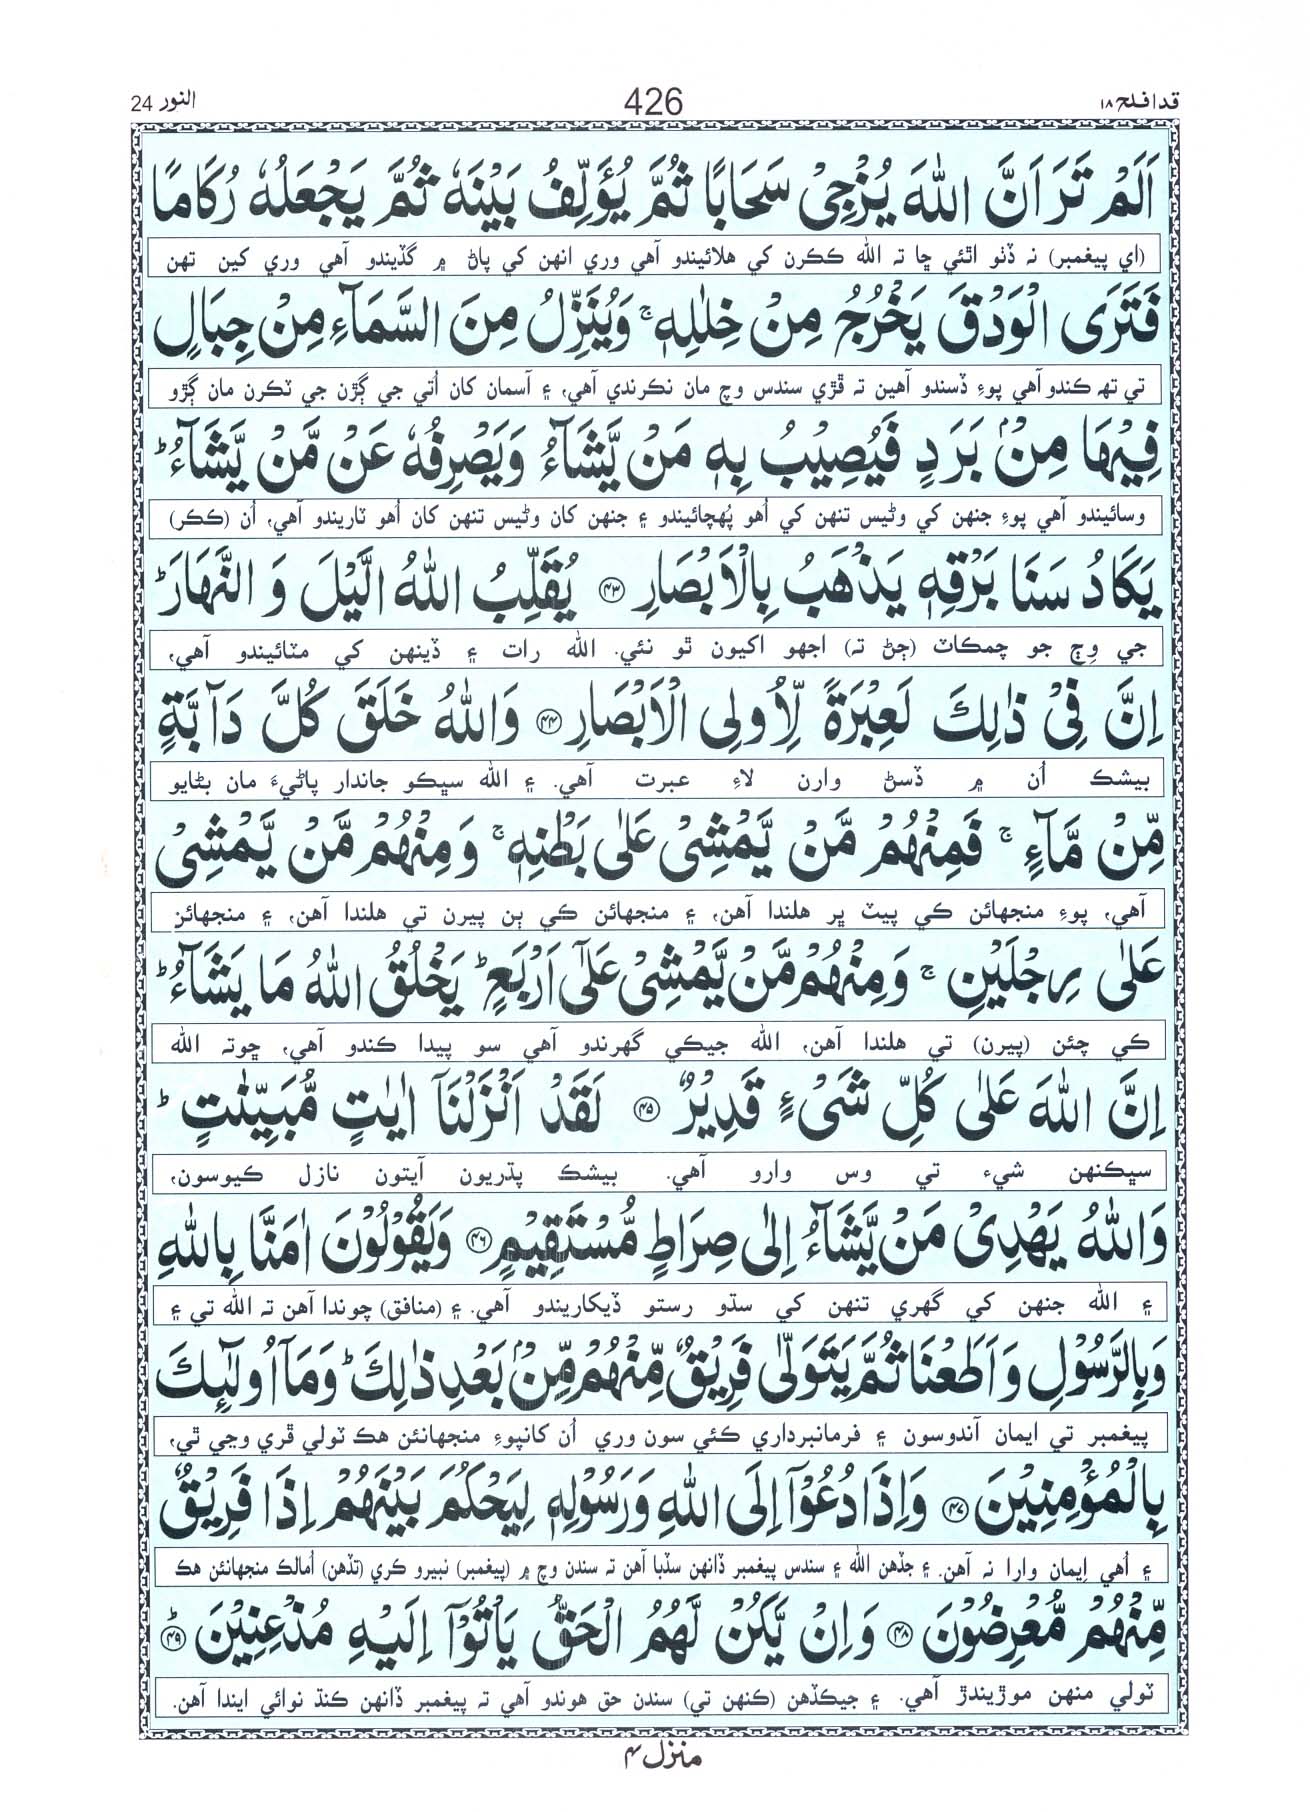 قد افلح ١٨
426
النور 24
اَلَمْ تَرَ اَنَّ اللهَ يُزْجِيْ سَحَابًا ثُمَّ يُؤَلِّفُ بَيْنَهٗ ثُمَّ يَجْعَلُهٗ رُكَامًا
(اي پيغمبر) نہ ڏٺو اٿئي ڇا تہ الله ڪڪرن کي هلائيندو آهي وري انهن کي پاڻ ۾ گڏيندو آهي وري کين تهن
فَتَرَى الْوَدْقَ يَخْرُجُ مِنْ خِلٰلِهٖ ۚ وَيُنَزِّلُ مِنَ السَّمَآءِ مِنْ جِبَالٍ
تي تهہ ڪندو آهي پوءِ ڏسندو آهين تہ ڦڙي سندس وچ مان نڪرندي آهي، ۽ آسمان کان اُتي جي ڳڙن جي ٽڪرن مان ڳڙو
فِيْهَا مِنْۢ بَرَدٍ فَيُصِيْبُ بِهٖ مَنْ يَّشَآءُ وَيَصْرِفُهٗ عَنْ مَّنْ يَّشَآءُ ؕ
وسائيندو آهي پوءِ جنهن کي وڻيس تنهن کي اُهو پُهچائيندو ۽ جنهن کان وڻيس تنهن کان اُهو ٽاريندو آهي، اُن (ڪڪر)
يَكَادُ سَنَا بَرْقِهٖ يَذْهَبُ بِالْاَبْصَارِ ۴۳ يُقَلِّبُ اللهُ الَّيْلَ وَ النَّهَارَ ؕ
جي وِڄ جو چمڪاٽ (ڄڻ تہ) اجهو اکيون ٿو نئي. الله رات ۽ ڏينهن کي مٽائيندو آهي،
اِنَّ فِيْ ذٰلِكَ لَعِبْرَةً لِّاُولِى الْاَبْصَارِ ۴۴ وَاللهُ خَلَقَ كُلَّ دَآبَّةٍ
بيشڪ اُن ۾ ڏسڻ وارن لاءِ عبرت آهي. ۽ الله سڀڪو جاندار پاڻيءَ مان بڻايو
مِّنْ مَّآءٍ ۚ فَمِنْهُمْ مَّنْ يَّمْشِيْ عَلٰى بَطْنِهٖ ۚ وَمِنْهُمْ مَّنْ يَّمْشِيْ
آهي، پوءِ منجهائن ڪي پيٽ ڀر هلندا آهن، ۽ منجهائن ڪي ٻن پيرن تي هلندا آهن، ۽ منجهائن
عَلٰى رِجْلَيْنِ ۚ وَمِنْهُمْ مَّنْ يَّمْشِيْ عَلٰٓى اَرْبَعٍ ؕ يَخْلُقُ اللهُ مَا يَشَآءُ ؕ
ڪي چئن (پيرن) تي هلندا آهن، الله جيڪي گهرندو آهي سو پيدا ڪندو آهي، ڇوتہ الله
اِنَّ اللهَ عَلٰى كُلِّ شَيْءٍ قَدِيْرٌ ۴۵ لَقَدْ اَنْزَلْنَآ اٰيٰتٍ مُّبَيِّنٰتٍ ؕ
سڀڪنهن شيء تي وس وارو آهي. بيشڪ پڌريون آيتون نازل ڪيوسون،
وَاللهُ يَهْدِيْ مَنْ يَّشَآءُ اِلٰى صِرَاطٍ مُّسْتَقِيْمٍ ۴۶ وَيَقُوْلُوْنَ اٰمَنَّا بِاللهِ
۽ الله جنهن کي گهري تنهن کي سڌو رستو ڏيکاريندو آهي. ۽ (منافق) چوندا آهن تہ الله تي ۽
وَبِالرَّسُوْلِ وَاَطَعْنَا ثُمَّ يَتَوَلّٰى فَرِيْقٌ مِّنْهُمْ مِّنْۢ بَعْدِ ذٰلِكَ ؕ وَمَآ اُولٰٓئِكَ
پيغمبر تي ايمان آندوسون ۽ فرمانبرداري ڪئي سون وري اُن کانپوءِ منجهانئن هڪ ٽولي ڦري وڃي ٿي،
بِالْمُؤْمِنِيْنَ ۴۷ وَاِذَا دُعُوْٓا اِلَى اللهِ وَرَسُوْلِهٖ لِيَحْكُمَ بَيْنَهُمْ اِذَا فَرِيْقٌ
۽ اُهي اِيمان وارا نہ آهن. ۽ جڏهن الله ۽ سندس پيغمبر ڏانهن سڏبا آهن تہ سندن وچ ۾ (پيغمبر) نبيرو ڪري (تڏهن) اُمالڪ منجهانئن هڪ
مِّنْهُمْ مُّعْرِضُوْنَ ۴۸ وَاِنْ يَّكُنْ لَّهُمُ الْحَقُّ يَاْتُوْٓا اِلَيْهِ مُذْعِنِيْنَ ؕ ۴۹
ٽولي منهن موڙيندڙ آهي. ۽ جيڪڏهن (ڪنهن تي) سندن حق هوندو آهي تہ پيغمبر ڏانهن ڪنڌ نوائي ايندا آهن.
منزل ۴